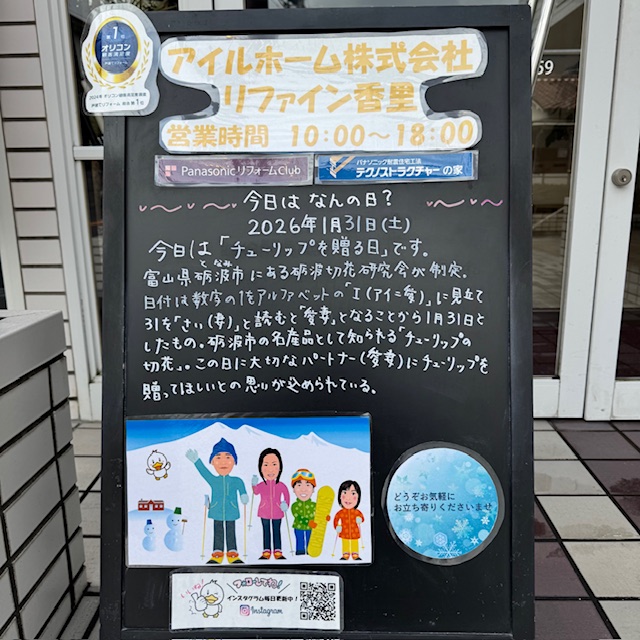 第1位
オリコン
顧客満足度
戸建てリフォーム
2024年 オリコン顧客満足度調査
戸建てリフォーム 近畿 第1位
アイルホーム株式会社
リファイン香里
営業時間 10:00～18:00
Panasonic リフォームClub
パナソニック耐震住宅工法
テクノストラクチャーの家
59
今日は なんの日？
2026年1月31日(土)
今日は「チューリップを贈る日」です。
となみ
富山県砺波市にある砺波切花研究会が制定。
日付は数字の1をアルファベットの「I(アイ=愛)」に見立て
31を「さい(妻)」と読むと「愛妻」となることから1月31日と
したもの。砺波市の名産品として知られる「チューリップの
切花」。この日に大切なパートナー(愛妻)にチューリップを
贈ってほしいとの思いが込められている。
どうぞお気軽に
お立ち寄りくださいませ
フォローしてね！
インスタグラム毎日更新中！
Instagram